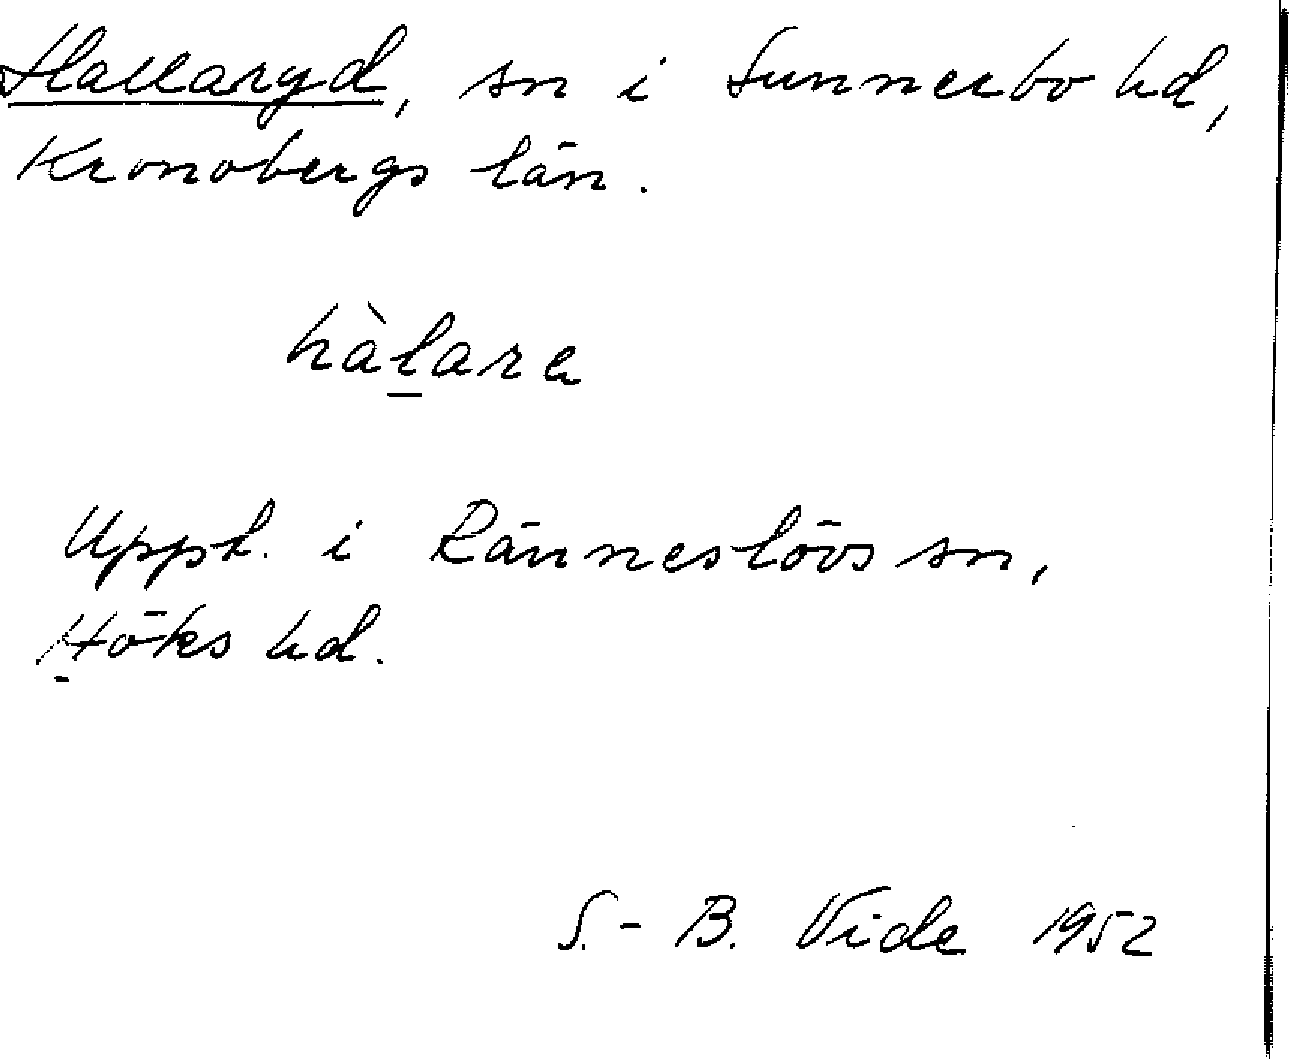 Hallaryd, sn i Sunnerbo hd,
Kronobergs län.
hàl̲are
Uppt. i Ränneslövs sn,
Höks hd.
S.-B. Vide 1952